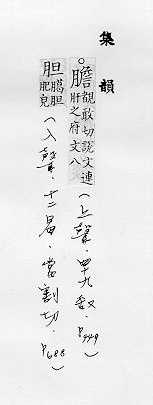 集韻
○膽覩敢切說文連
肝之府文八(上聲.四十九敢.P449)
胆腽胆
肥皃(入聲.十二曷.當割切.P688)